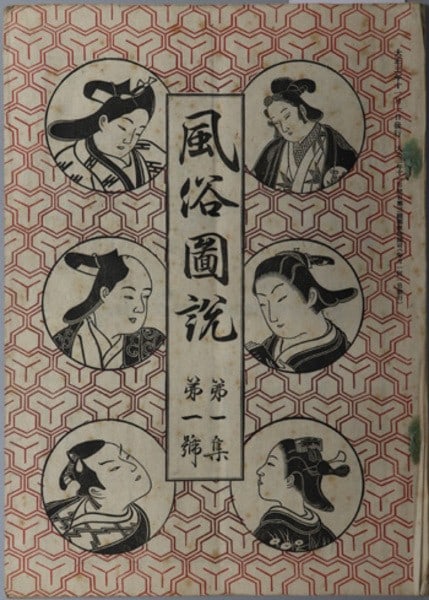 風俗圖説
第一集
第一號